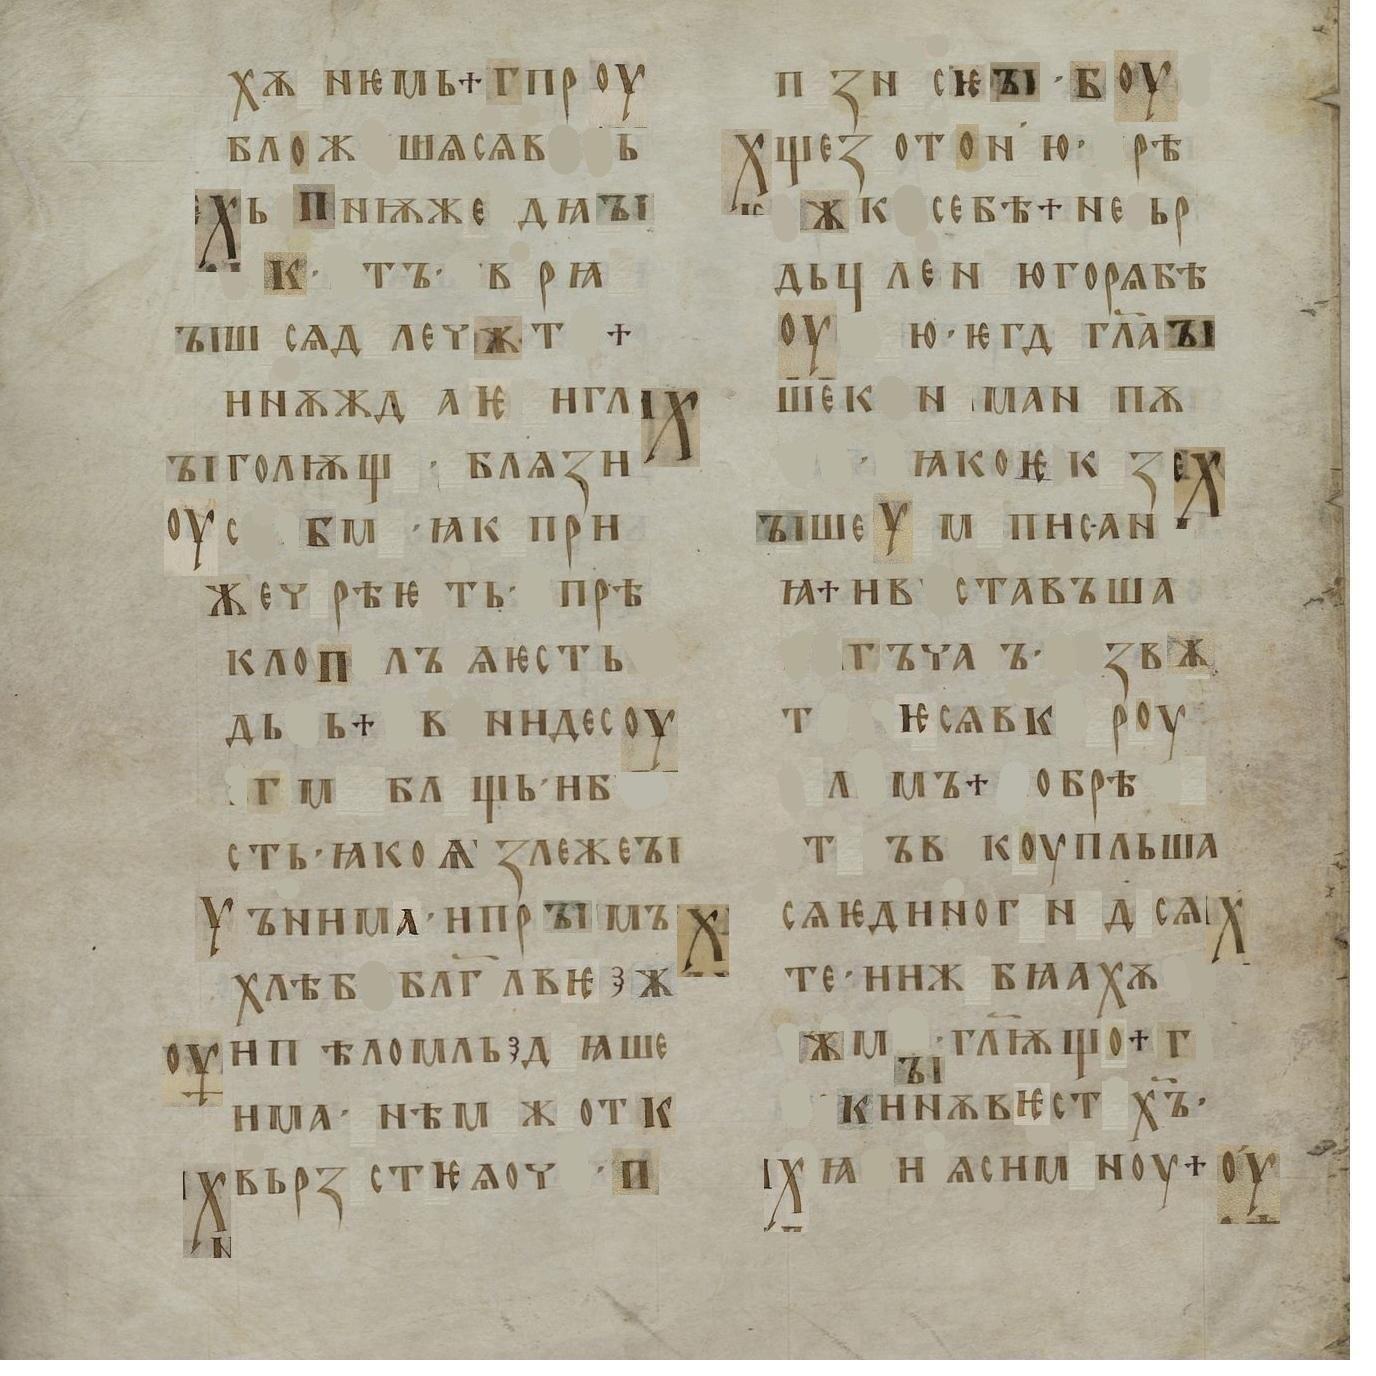 хѫ нѥмь+гпроу
блож шѧсѧв ь
хь пниѭже дꙗꙑ
к· тъ· в рꙗ
ꙑш сѧд леүжт +
ннѫжд аѥ нглх
ꙑголѭщ · блѧзн
оус бм ·ꙗк прн
жеү рѣѥ ть· прѣ
клоп лъ ѧѥсть
дь ь+ в ниндесоу
гм бл щь·нб
сть·ꙗкоѧ злежеꙑ
у ъннма·нпрꙑмъх
хлѣб блг лвѥ з ж
оунп ѣломльзд ꙗше
нма· нѣм ж отк
хвьрз стѥѧоү ·п
п зн сѥꙑ ·боу
хщез отон ю· рѣ
ж к себѣ+не ьр
дьц лен югорѧбѣ
оу ю·ѥгд глаꙑ
шек н ман пѫ
· ꙗкоѥ к зех
ꙑшеу м писан
ꙗ+нв ставъша
гъүа ъ· звж
т ѥсѧвк роу
л мъ+ обрѣ
т ъв коупльша
сѧѥдиног н д сѧх
те·ниж бꙗахѫ
жм ꙑ·глѭщо+г
книѫвѥст хъ·
хꙗ н ѧсим ноу+оу